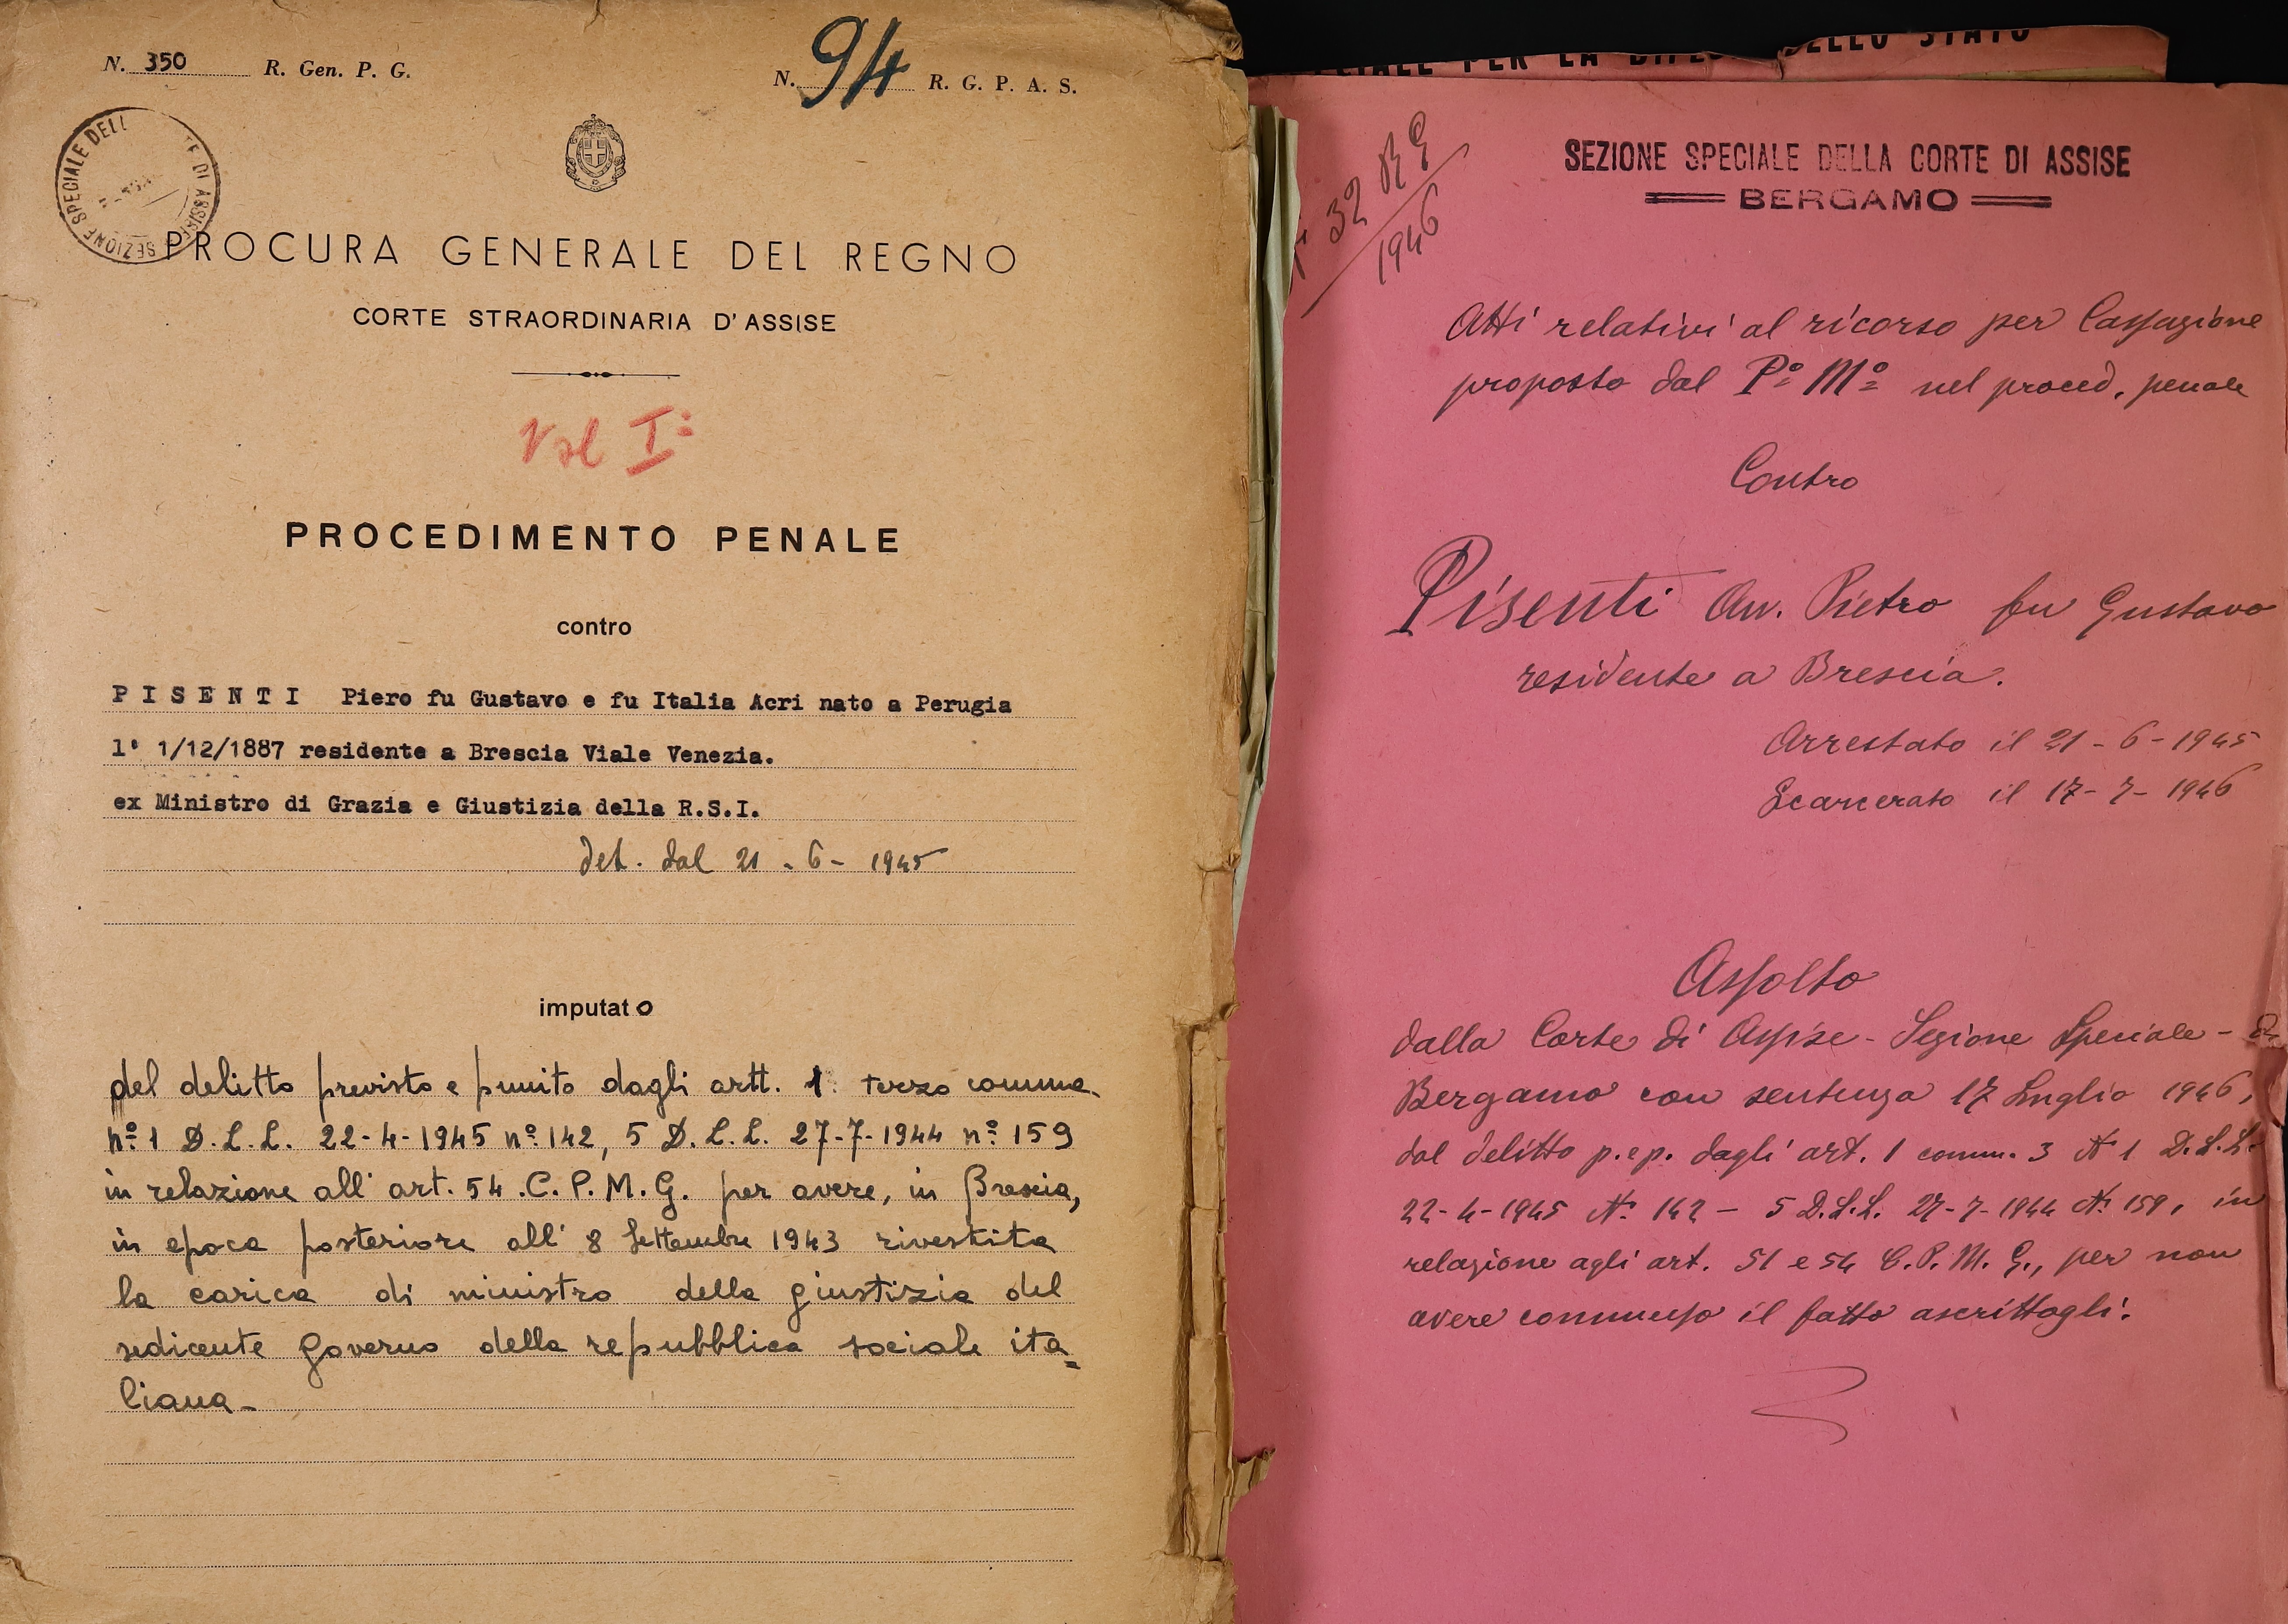 N. 350 R. Gen. P. G.
N. 94 R. G. P. A. S.
SEZIONE SPECIALE DELL TE DI ASSISE
PROCURA GENERALE DEL REGNO
CORTE STRAORDINARIA D'ASSISE
Vol I°
PROCEDIMENTO PENALE
contro
PISENTI Piero fu Gustavo e fu Italia Acri nato a Perugia
l' 1/12/1887 residente a Brescia Viale Venezia.
ex Ministro di Grazia e Giustizia della R.S.I.
det. dal 21 - 6 - 1945
imputato
del delitto previsto e punito dagli artt. 1 terzo comma
n° 1 D.L.L. 22-4-1945 n° 142, 5 D.L.L. 27-7-1944 n° 159
in relazione all' art. 54 C.P.M.G. per avere, in Brescia,
in epoca posteriore all' 8 Settembre 1943 rivestita
la carica di ministro della giustizia del
sedicente governo della repubblica sociale ita=
liana-
CIALE PER LA DIFES DELLO STATO
32 RG
1946
SEZIONE SPECIALE DELLA CORTE DI ASSISE
BERGAMO
Atti relativi al ricorso per Cassazione
proposto dal P° M° nel proced. penale
Contro
Pisenti Avv. Pietro fu Gustavo
residente a Brescia.
Arrestato il 21-6-1945
Scarcerato il 17-7-1946
Assolto
dalla Corte di Assise - Sezione Speciale -
Bergamo con sentenza 17 Luglio 1946,
dal delitto p. e p. dagli art. 1 comm. 3 N° 1 D.L.L.
22-4-1945 N° 142 - 5 D.L.L. 27-7-1944 N° 159, in
relazione agli art. 51 e 54 C.P.M.G., per non
avere commesso il fatto ascrittogli.